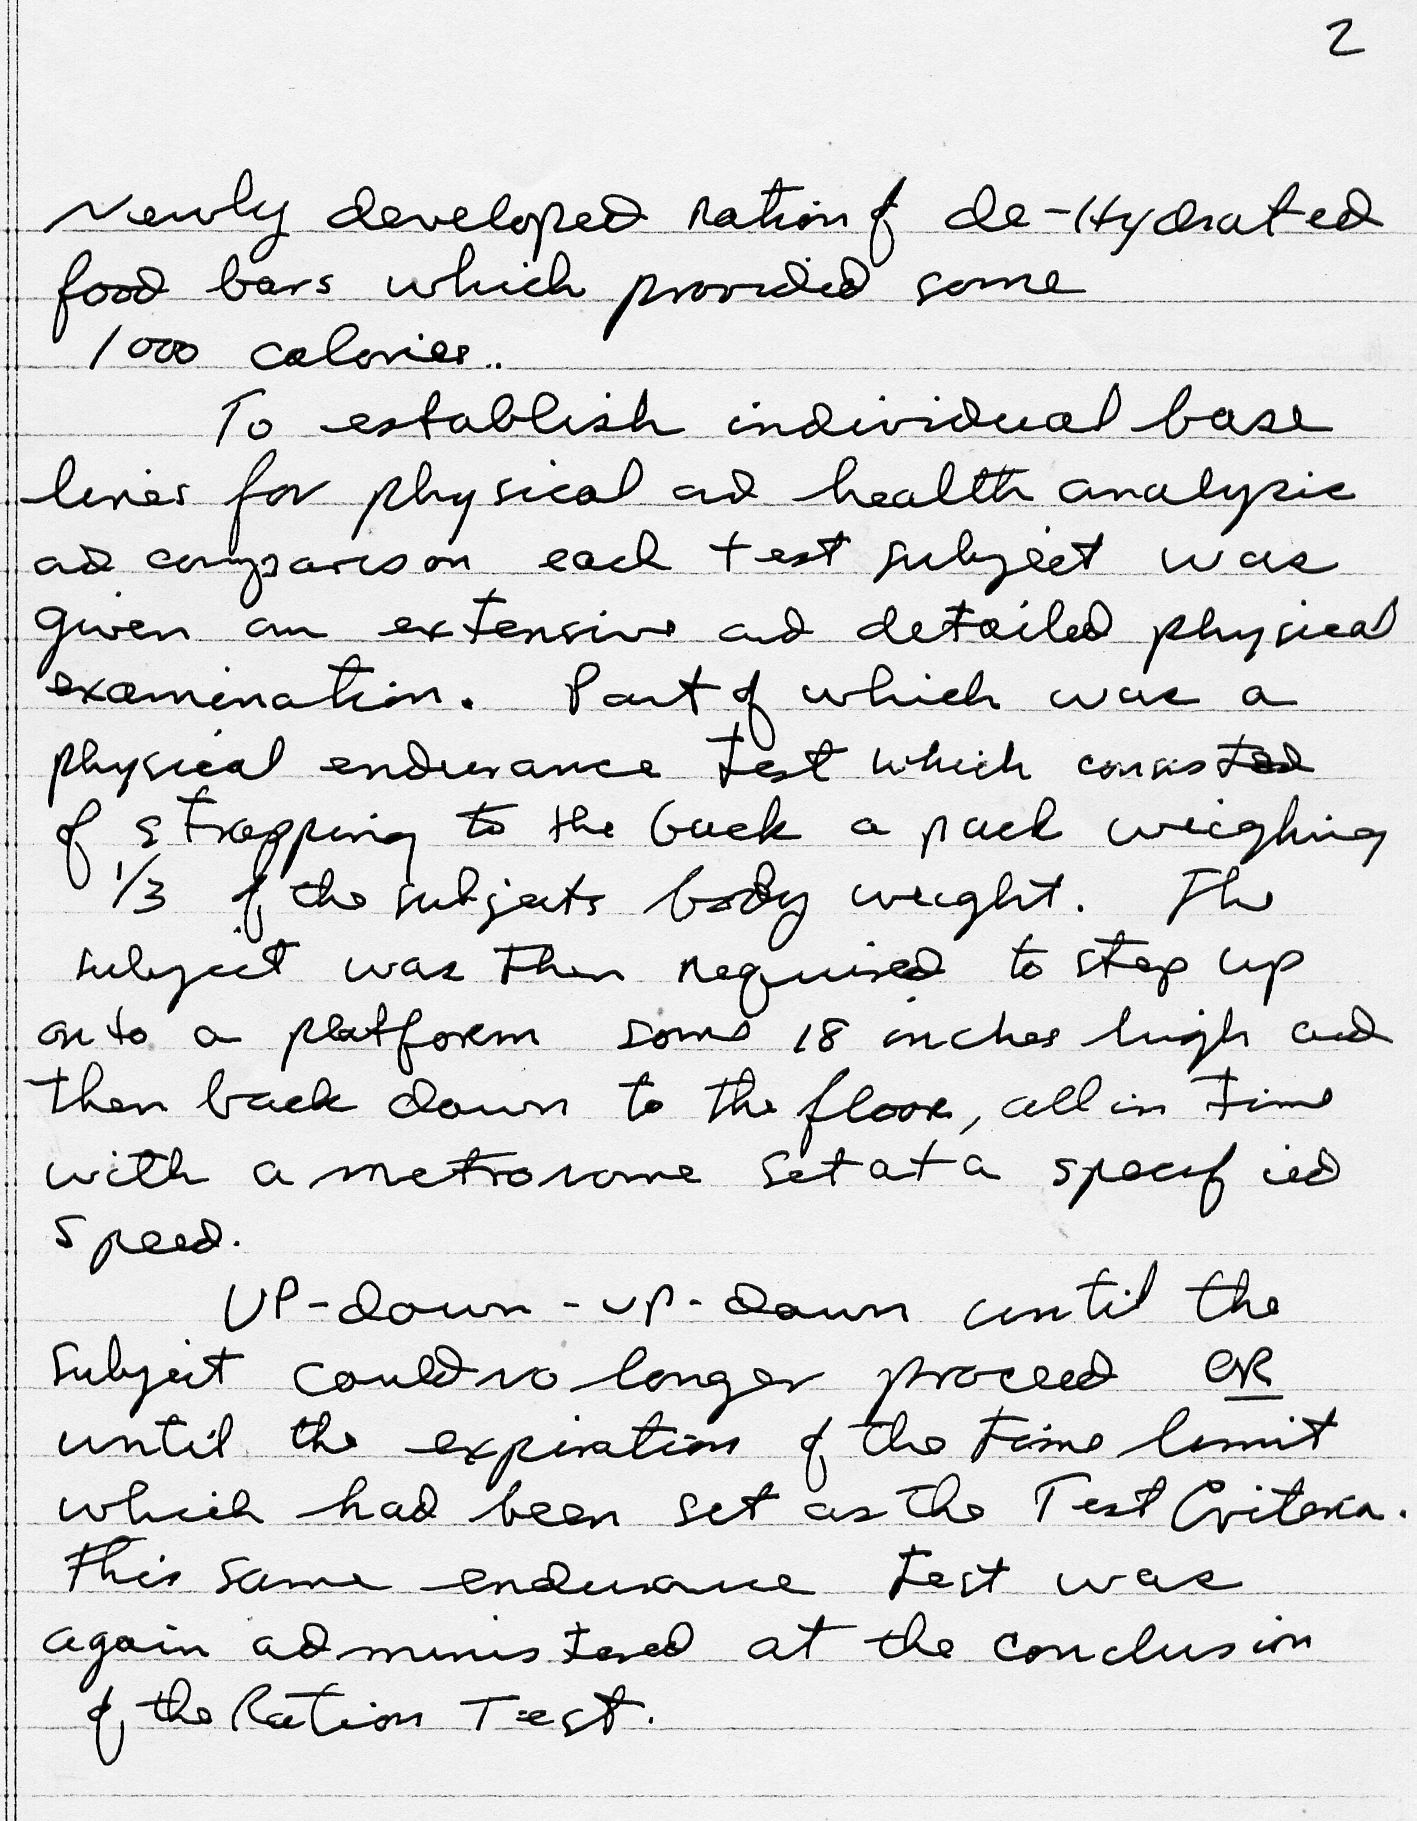 2
Newly developed ration of de-Hydrated
food bars which provided some
1000 calories..
To establish individual base
lines for physical and health analysis
and comparison each test subject was
given an extensive and detailed physical
examination. Part of which was a
physical endurance test which consisted
of strapping to the back a pack weighing
1/3 of the subjects body weight. The
subject was then required to step up
onto a platform some 18 inches high and
then back down to the floor, all in time
with a metronome set at a specified
speed.
UP-down-up-down until the
subject could no longer proceed OR
until the expiration of the time limit
which had been set as the Test Criteria.
This same endurance test was
again administered at the conclusion
of the Ration Test.